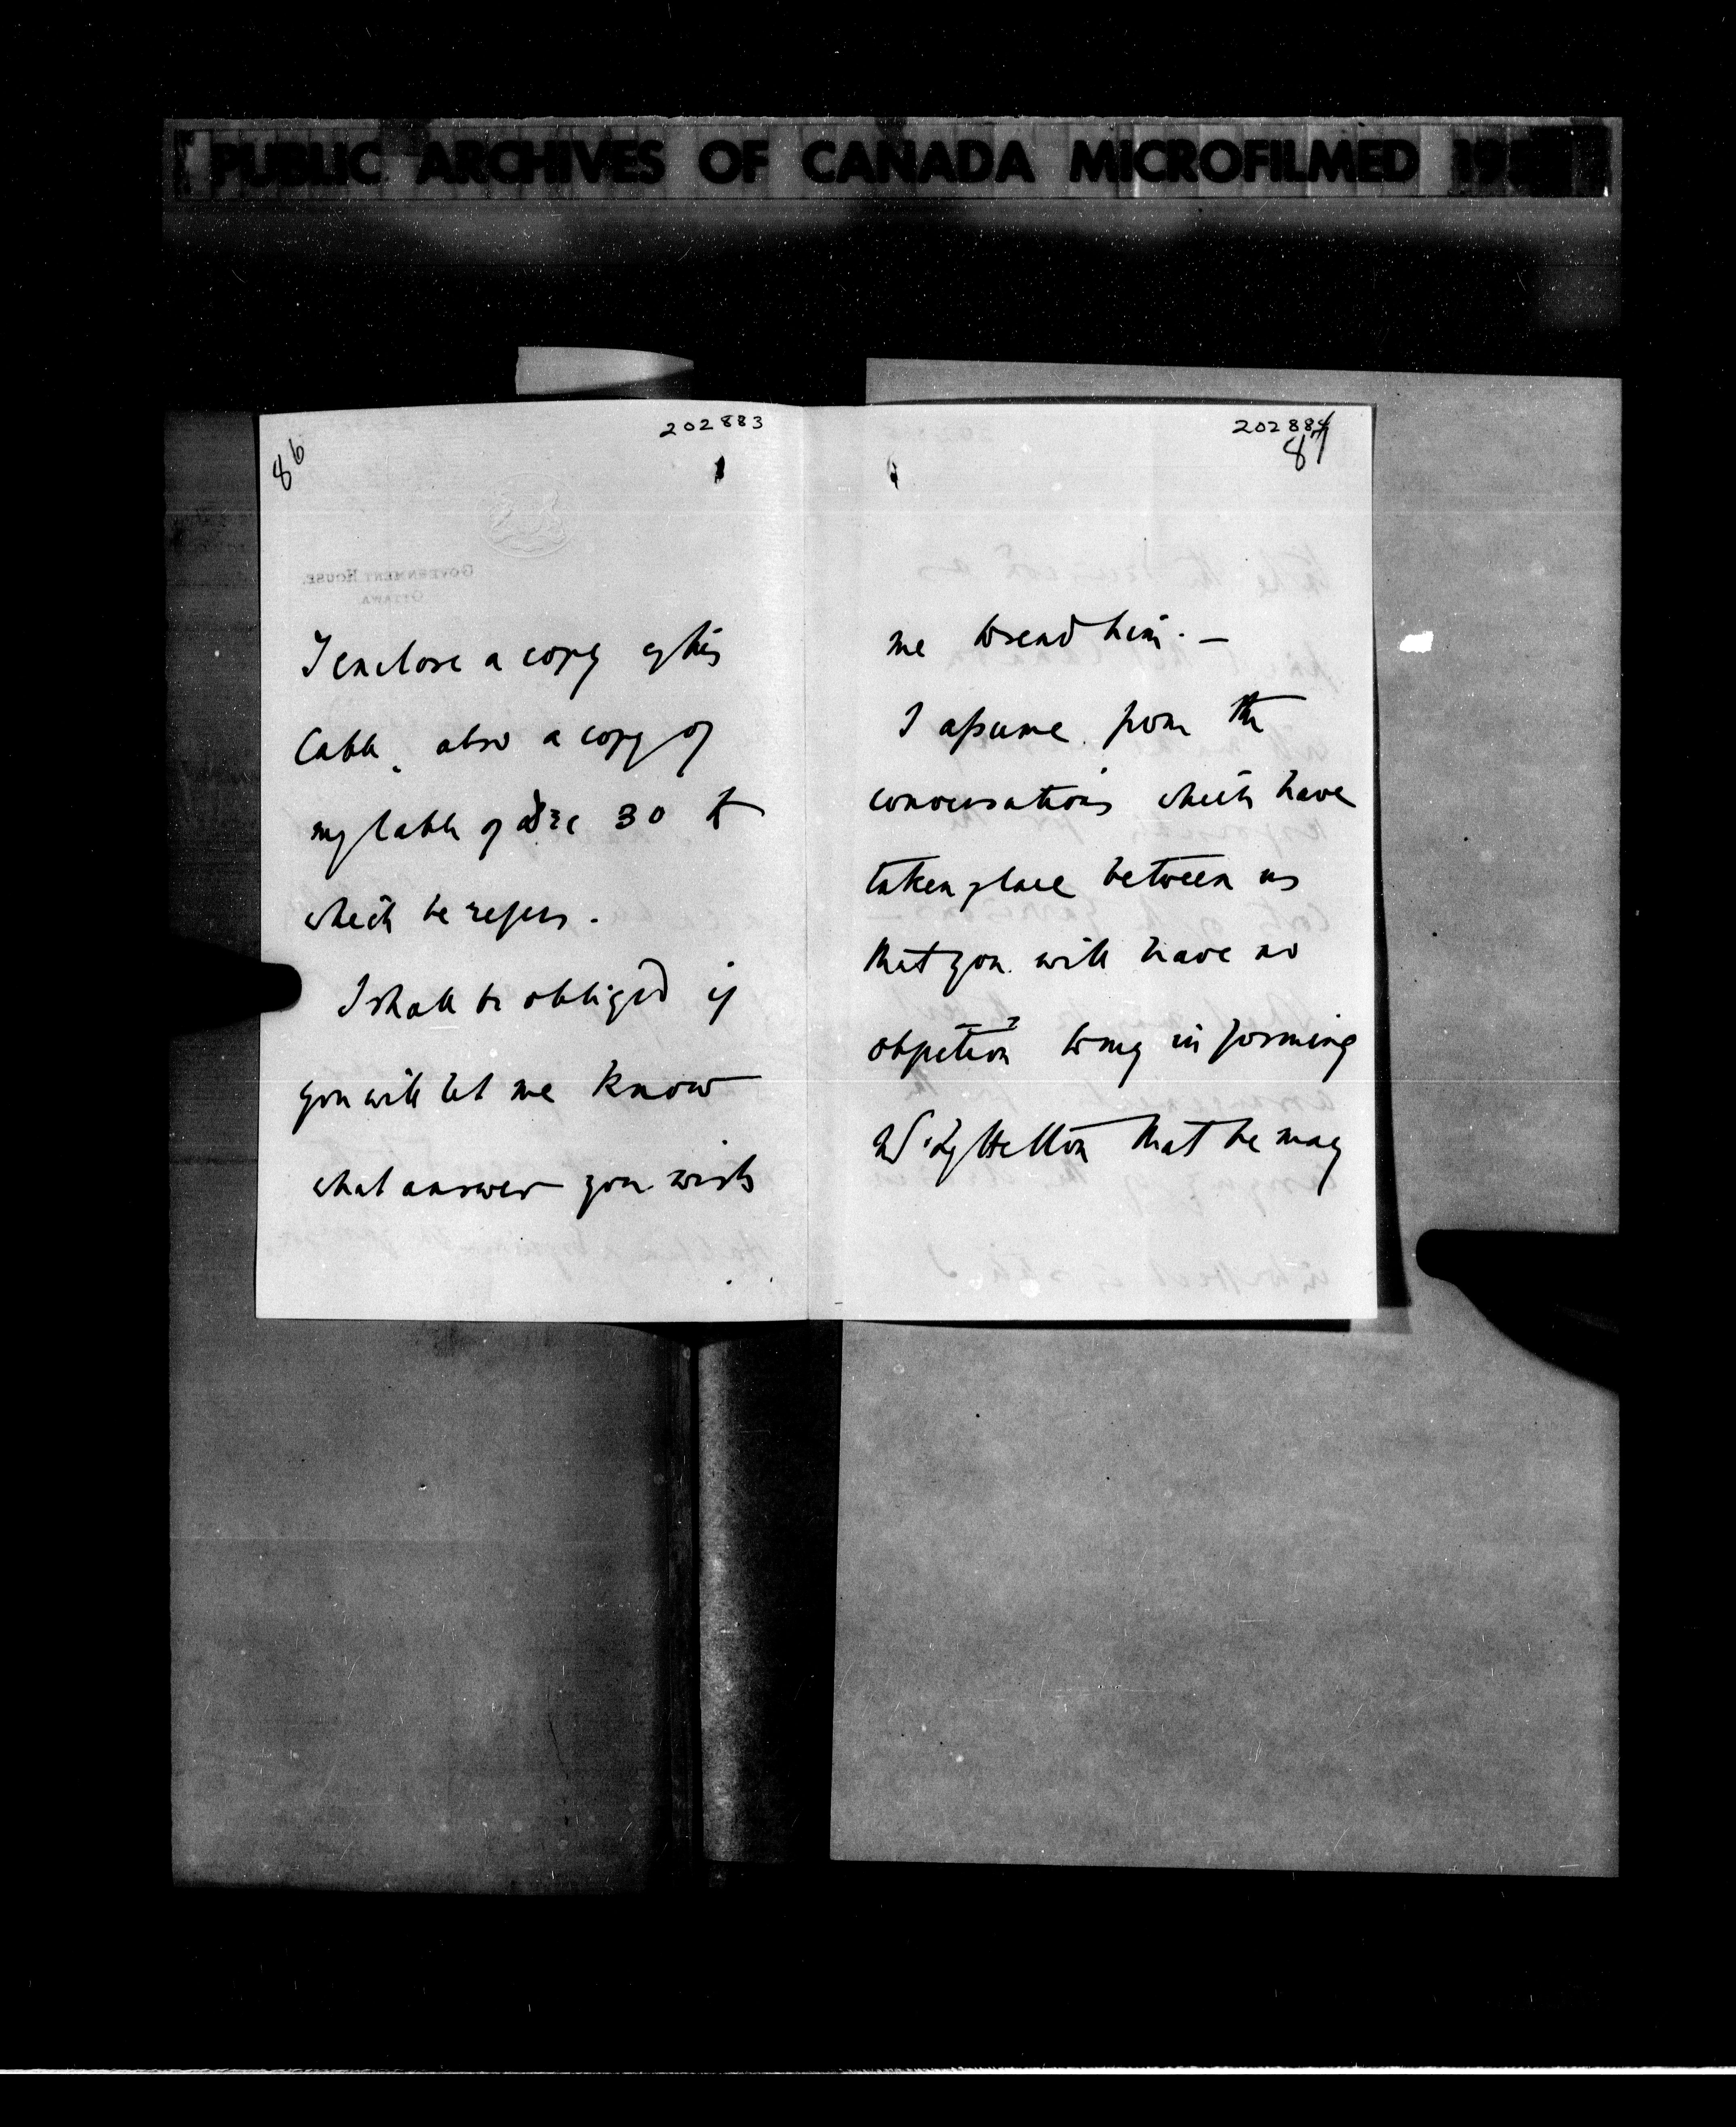 PUBLIC ARCHIVES OF CANADA MICROFILMED 19
202883
86
GOVERNMENT HOUSE.
OTTAWA.
I enclose a copy of his
Cable, also a copy of
my Cable of Dec 30 to
which he refers.
I shall be obliged if
you will let me know
what answer you wish
202884
87
me to send him. —
I assume from the
conversations which have
taken place between us
that you will have no
objection to my informing
Mr. Lyttelton that he may